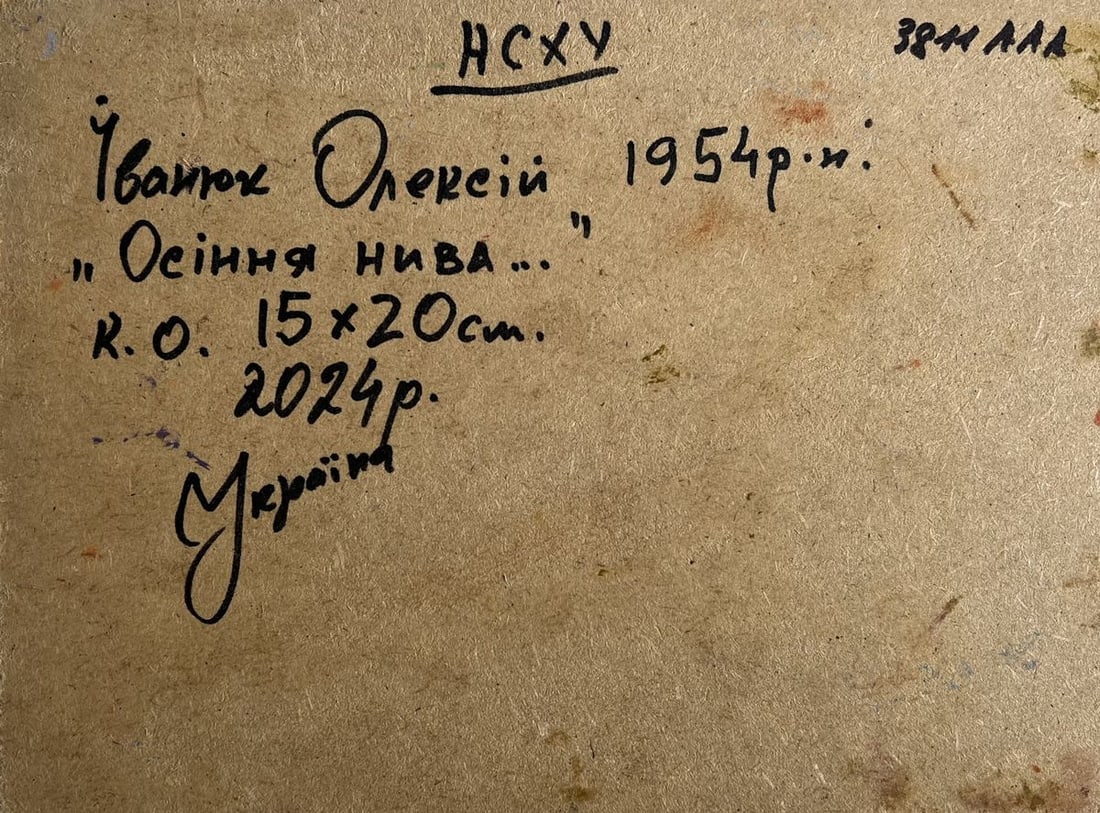 НСХУ
3811 ААА
Іванюк Олексій 1954р.н.
„Осіння нива..."
к.о. 15х20ст.
2024р.
Україна